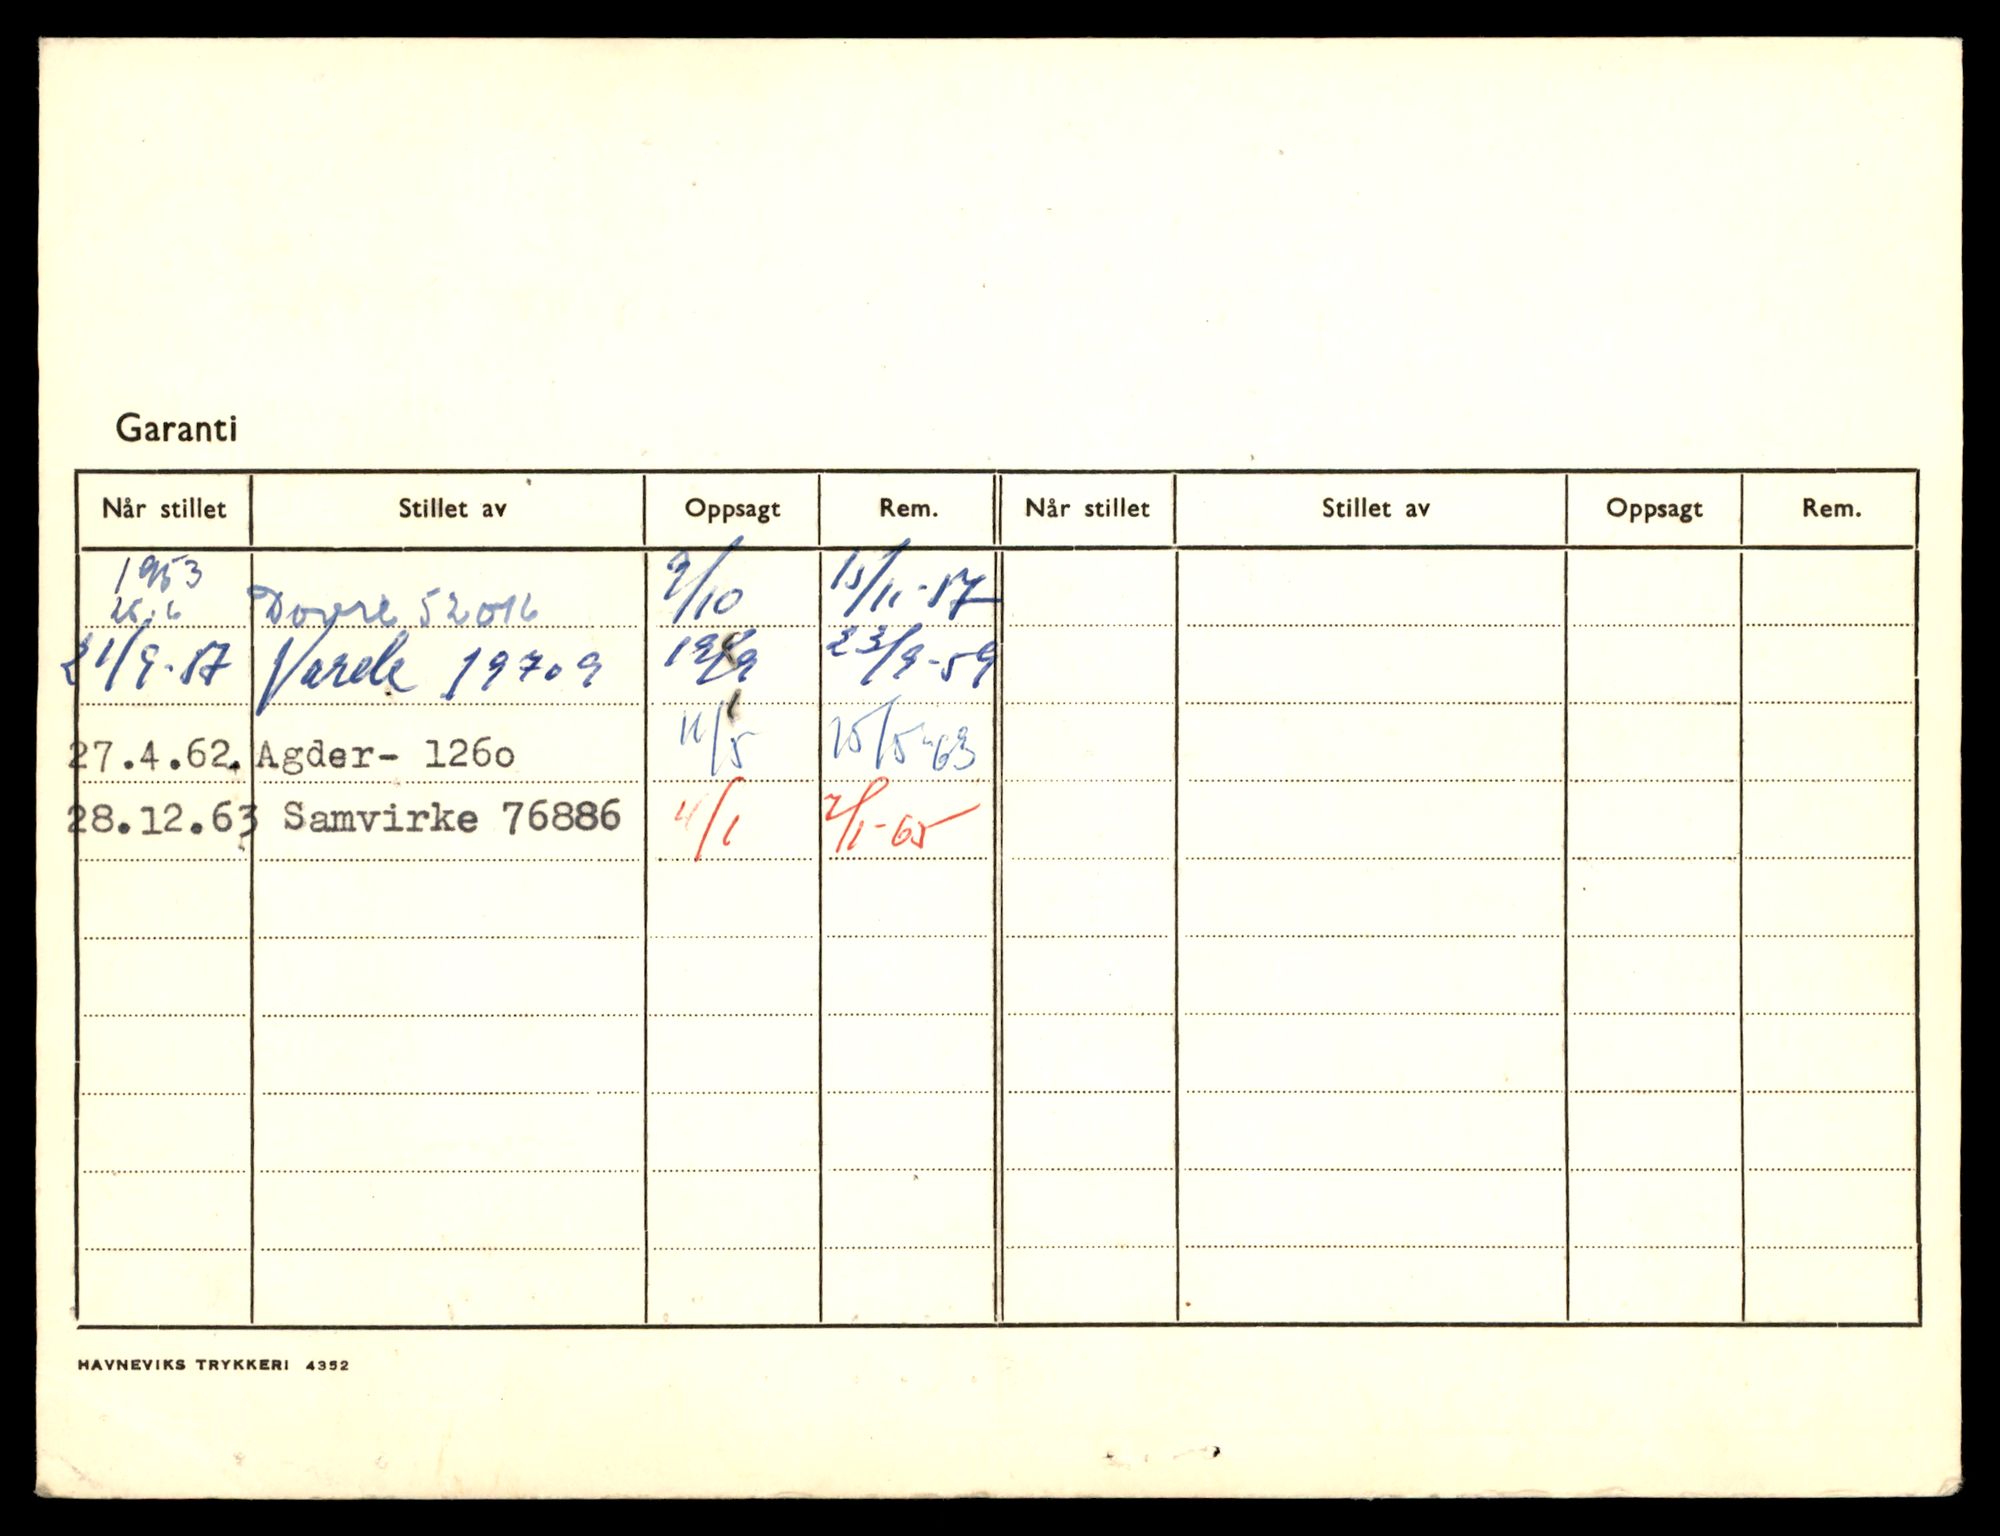 Garanti
Når stillet Stillet av Oppsagt Rem. Når stillet Stillet av Oppsagt Rem.
1953
26.6 Dovre 52016 9/10 15/11-57
21/9-57 Varde 19709 9/9 23/9-59
27.4.62. Agder- 126o 11/5 15/5-63
28.12.63 Samvirke 76886 4/1 7/1-65
HAVNEVIKS TRYKKERI 4352